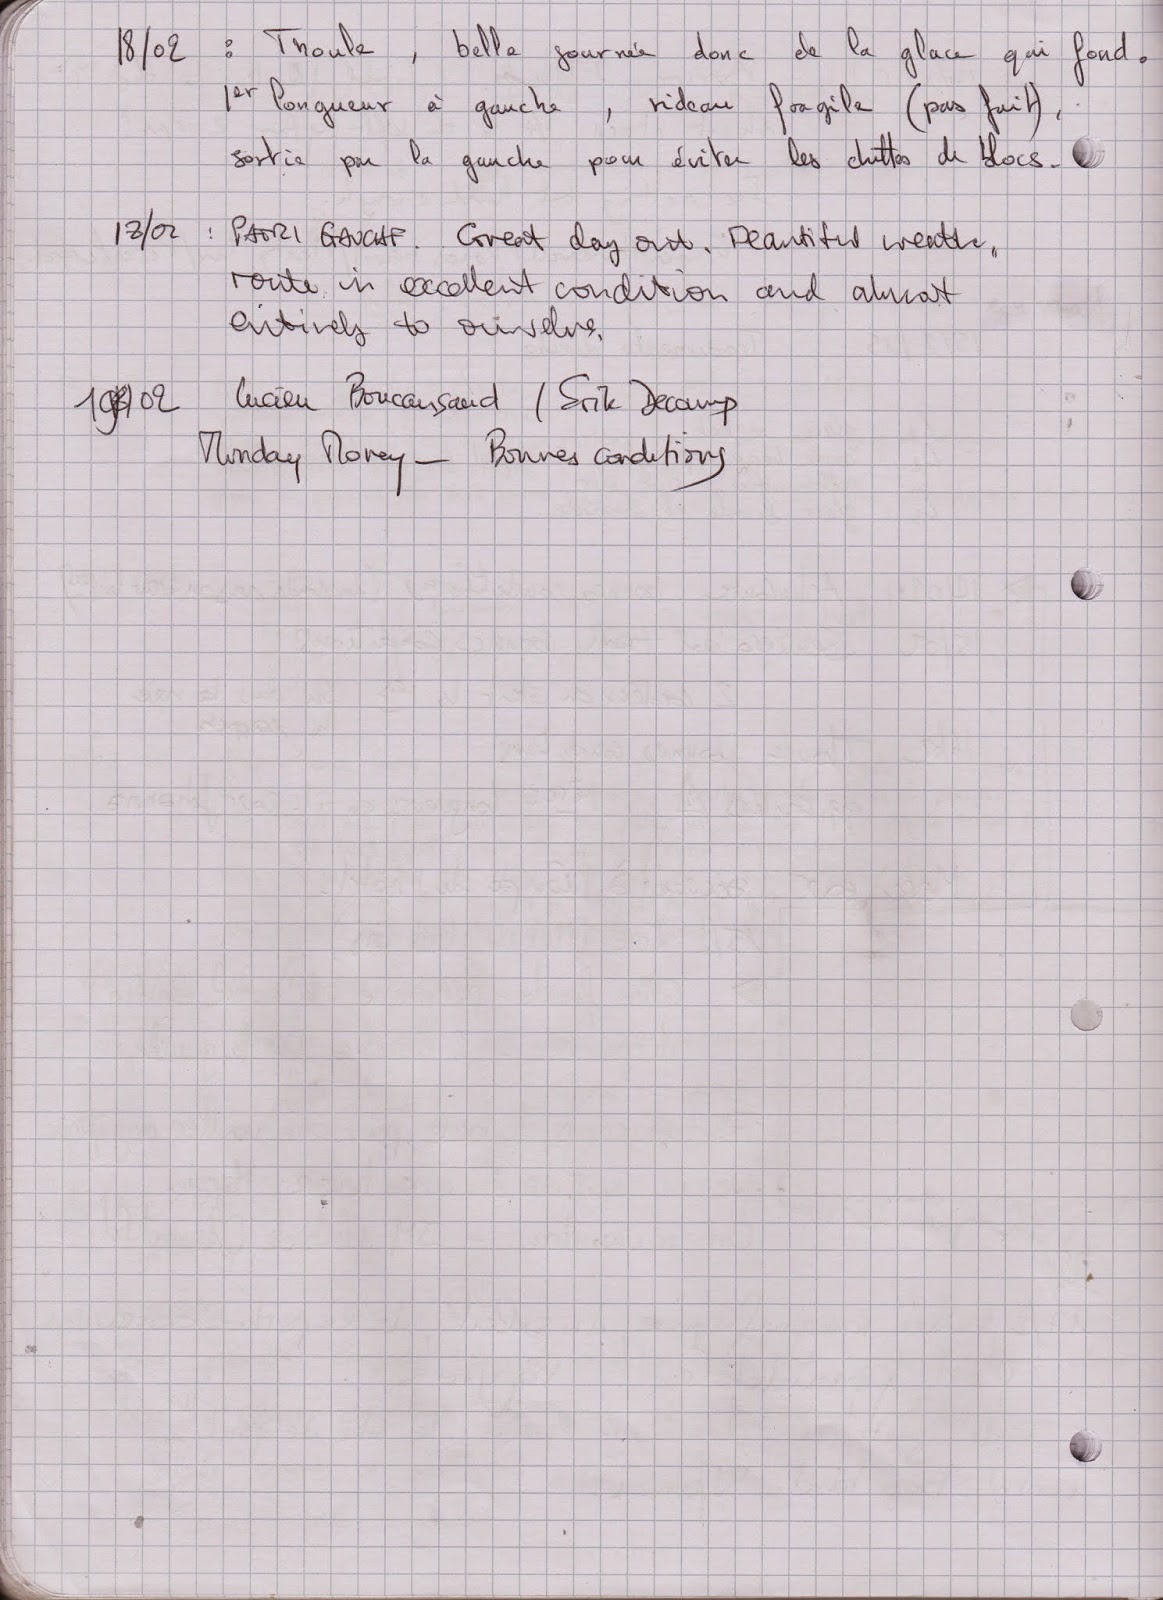 18/02 : Thoule, belle journée donc de la glace qui fond.
1er longueur à gauche, rideau fragile (pas fait),
sortie par la gauche pour éviter les chuttes de blocs.
17/02 : PATRI GAUCHE. Great day out. Beautiful weather,
route in excellent condition and almost
entirely to ourselves.
19/02 Lucien Boucansaud / Erik Decamp
Monday Money – Bonnes conditions